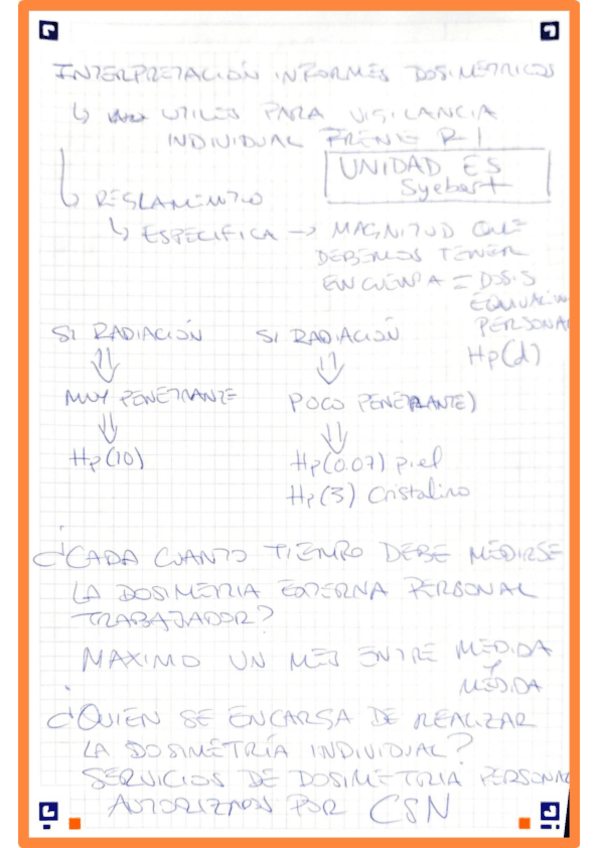 INTERPRETACIÓN INFORMES DOSIMÉTRICOS
↳ UTILES PARA VIGILANCIA
INDIVIDUAL FRENTE RI
UNIDAD ES
Syebert
↳ REGLAMENTO
↳ ESPECIFICA → MAGNITUD QUE
DEBEMOS TENER
EN CUENTA = DOSIS
EQUIVALEN
PERSONAL
Hp(d)
SI RADIACIÓN SI RADIACIÓN
MUY PENETRANTE POCO PENETRANTE)
Hp(10) Hp(0.07) piel
Hp(3) Cristalino
¿CADA CUANTO TIEMPO DEBE MEDIRSE
LA DOSIMETRIA EXTERNA PERSONAL
TRABAJADOR?
MAXIMO UN MES ENTRE MEDIDA
Y
MEDIDA
¿QUIÉN SE ENCARGA DE REALIZAR
LA DOSIMETRÍA INDIVIDUAL?
SERVICIOS DE DOSIMETRIA PERSONAL
AUTORIZADOS POR CSN